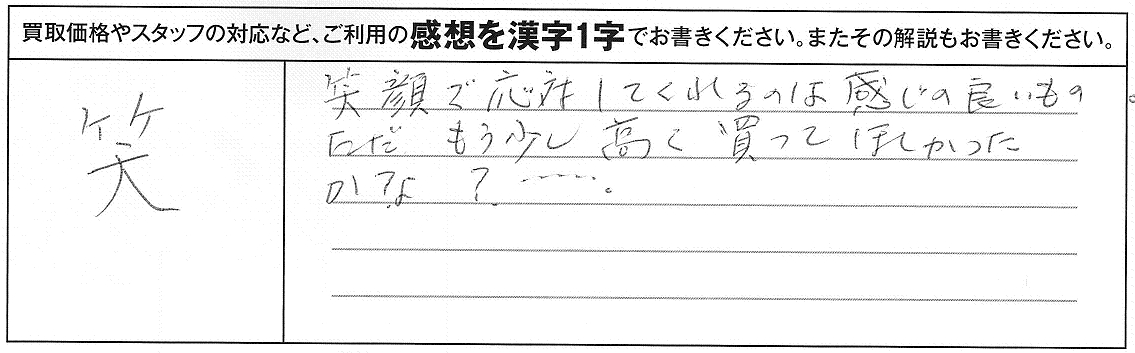 買取価格やスタッフの対応など、ご利用の感想を漢字1字でお書きください。またその解説もお書きください。
笑
笑顔で応対してくれるのは感じの良いもの。
ただ もう少し 高く 買って ほしかった
かな ? ……。